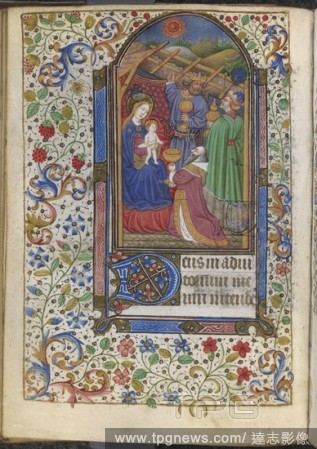 Deus in adiu
torium me
um intende
TPG
www.tpgnews.com/ 達志影像